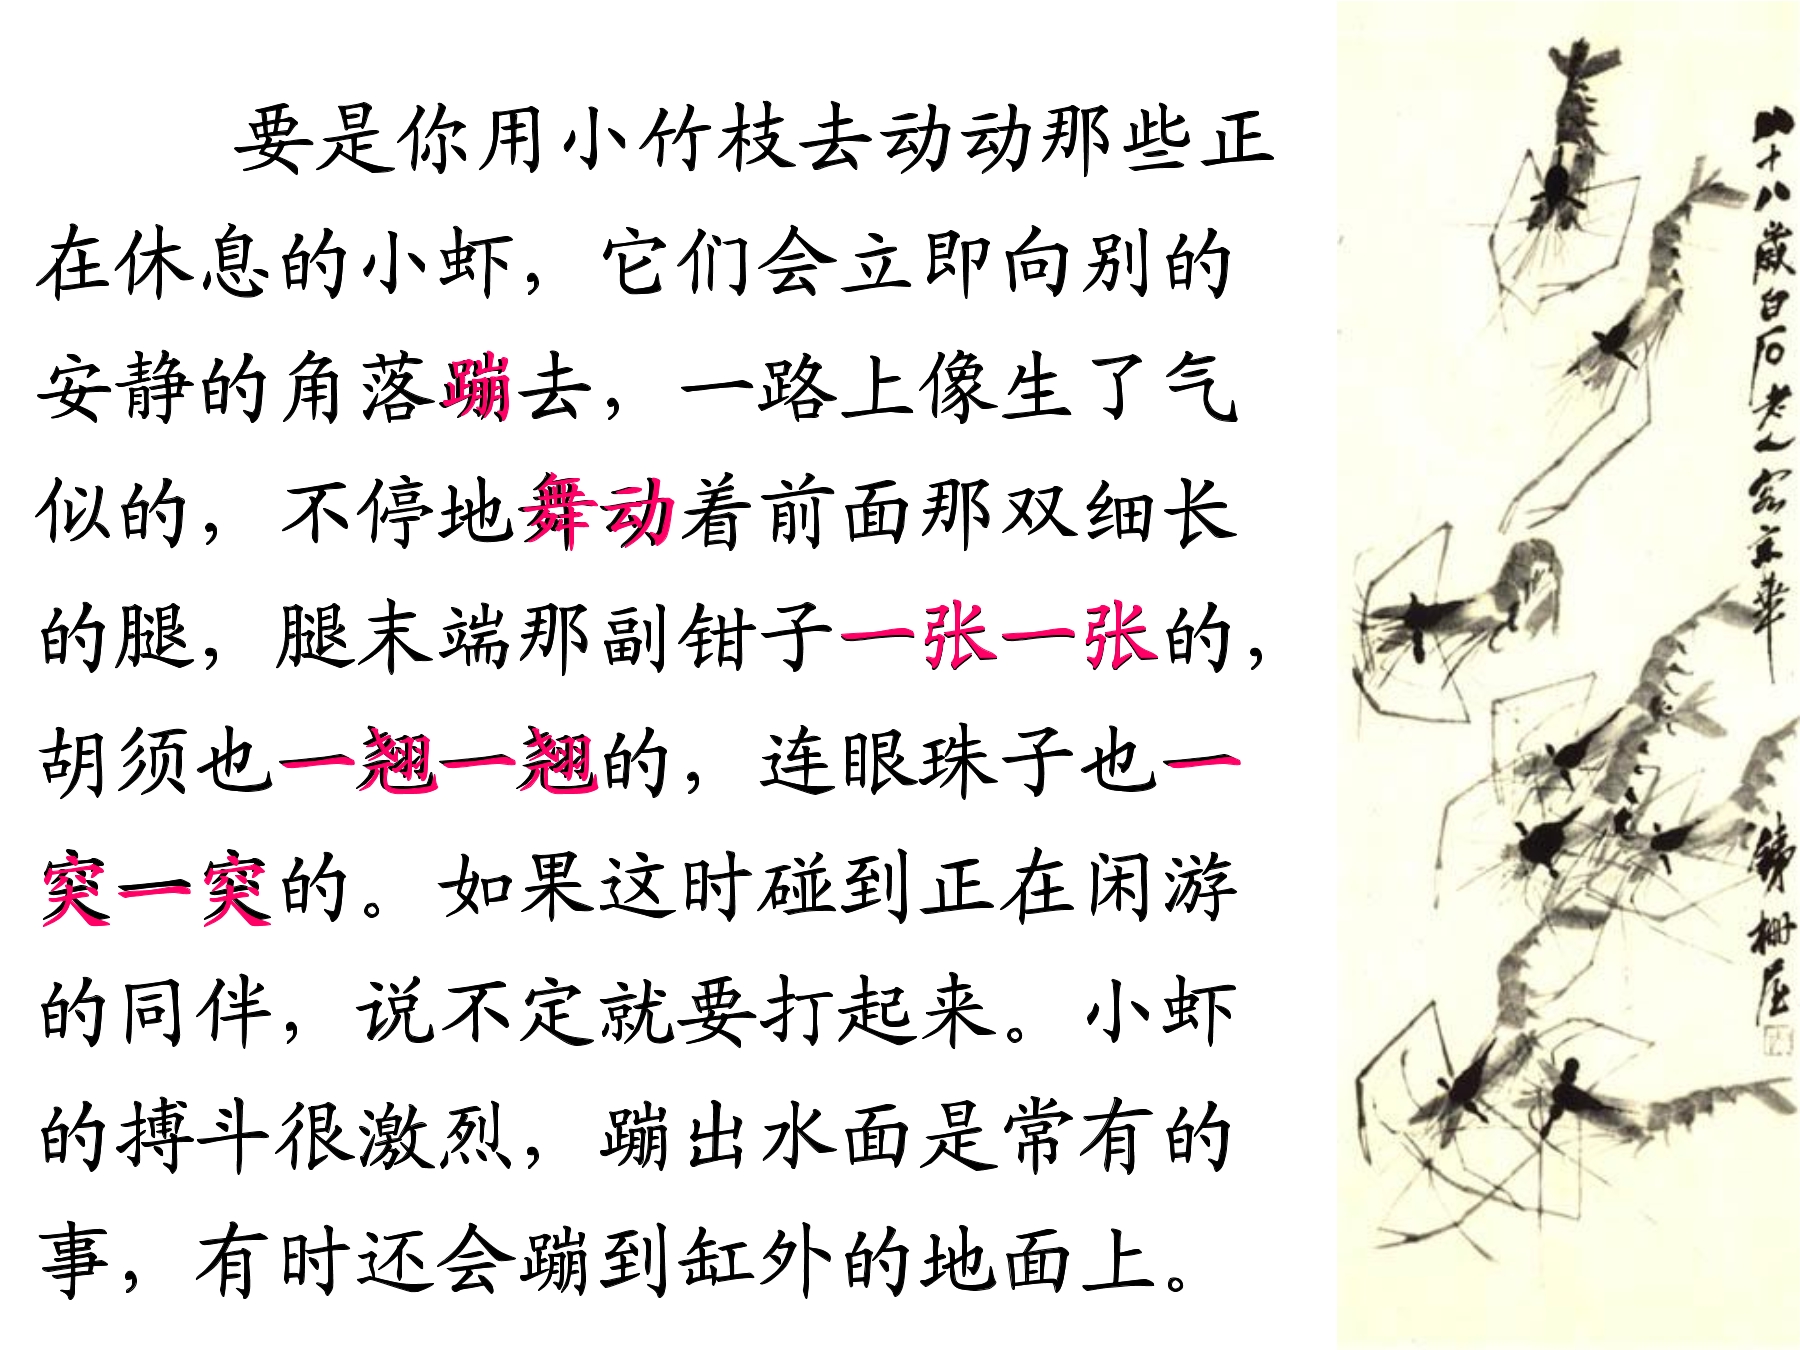 要是你用小竹枝去动动那些正
在休息的小虾，它们会立即向别的
安静的角落蹦去，一路上像生了气
似的，不停地舞动着前面那双细长
的腿，腿末端那副钳子一张一张的，
胡须也一翘一翘的，连眼珠子也一
突一突的。如果这时碰到正在闲游
的同伴，说不定就要打起来。小虾
的搏斗很激烈，蹦出水面是常有的
事，有时还会蹦到缸外的地面上。
八十八歲白石老人客京華
鐵柵屋